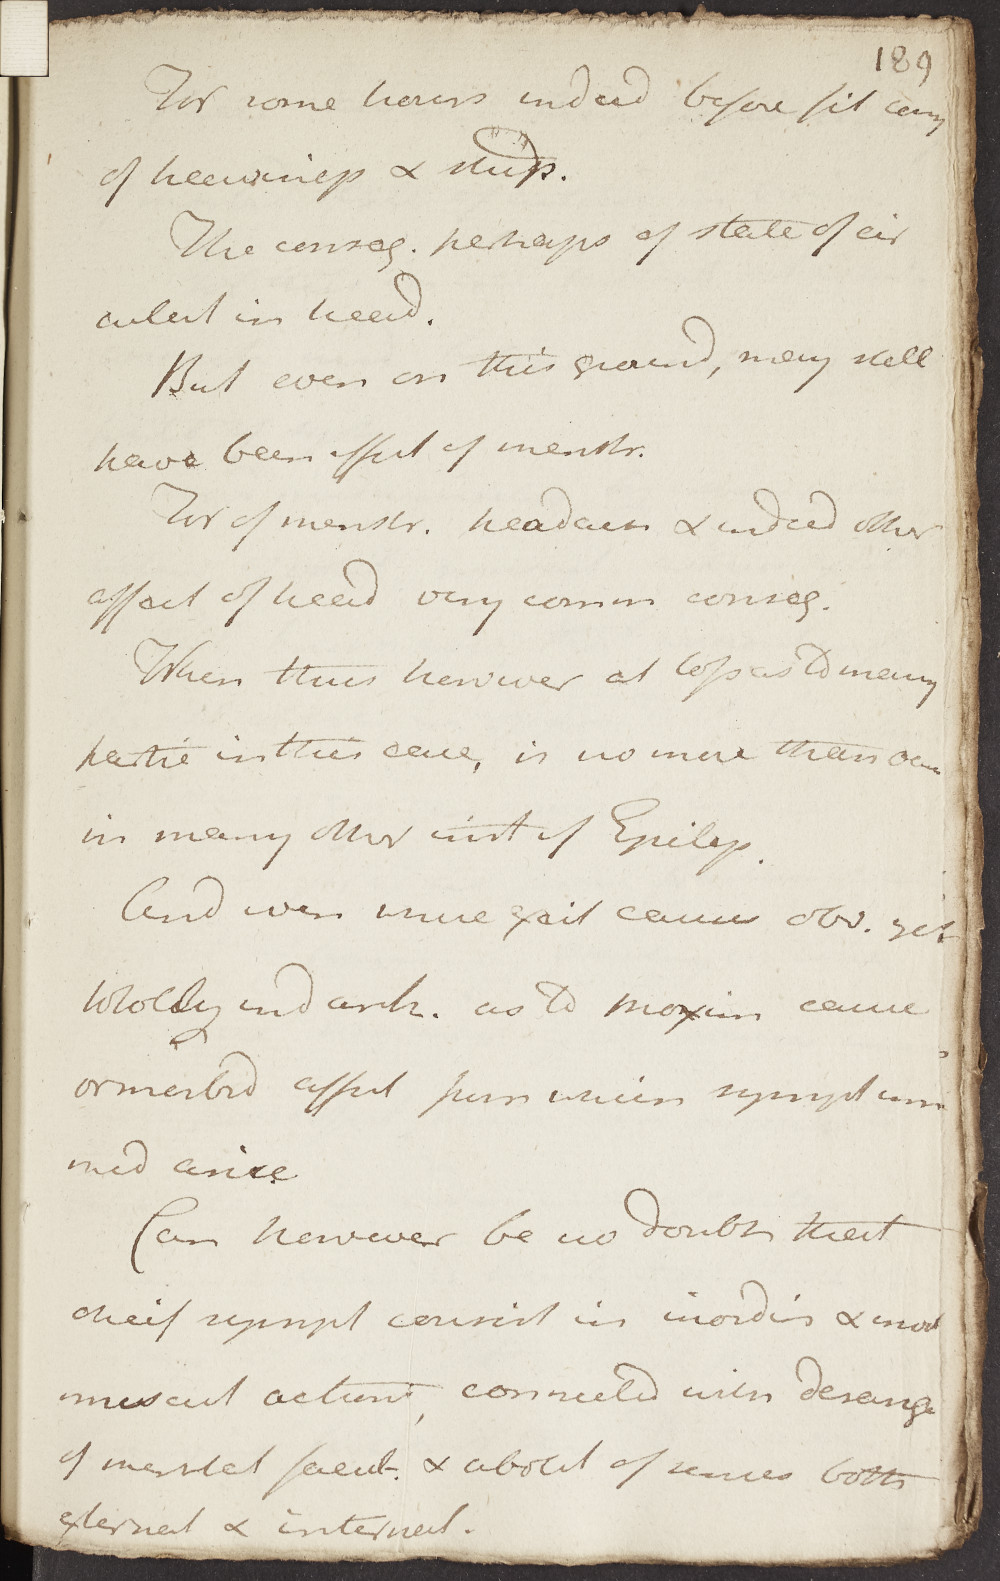 189
For some hours indeed before fit com
of heaviness & stup.
The conseq. perhaps of state of cir
culat in head.
But even on this ground, may still
have been effect of menstr.
For of menstr. headach & indeed other
affect of head very comm conseq.
When thus however at loss as to many
partic in this case, is no more than occ
in many other inst of Epilep.
And even where excit causes obv. yet
wholly in dark. as to proxim cause
or morbid affect from which sympt imm
med arise
Can however be no doubt that
cheif sympt consist in inordin & invol
muscul actions, connected with derange
of mental facult. & abolit of senses both
external & internal.